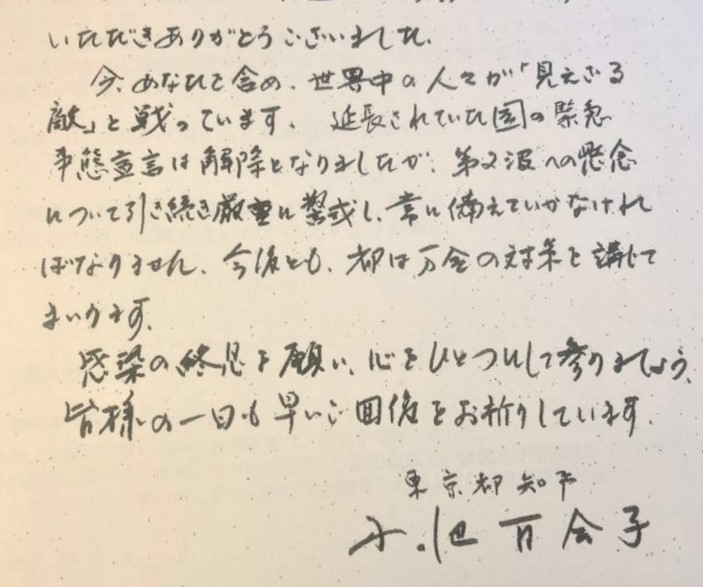 いただきありがとうございました。
今、あなたを含め、世界中の人々が「見えざる
敵」と戦っています。延長されていた国の緊急
事態宣言は解除となりましたが、第2波への懸念
について引き続き厳重に警戒し、常に備えていかなけれ
ばなりません。今後とも、都は万全の対策を講じて
まいります。
感染の終息を願い、心をひとつにして参りましょう。
皆様の一日も早いご回復をお祈りしています。
東京都知事
小池百合子